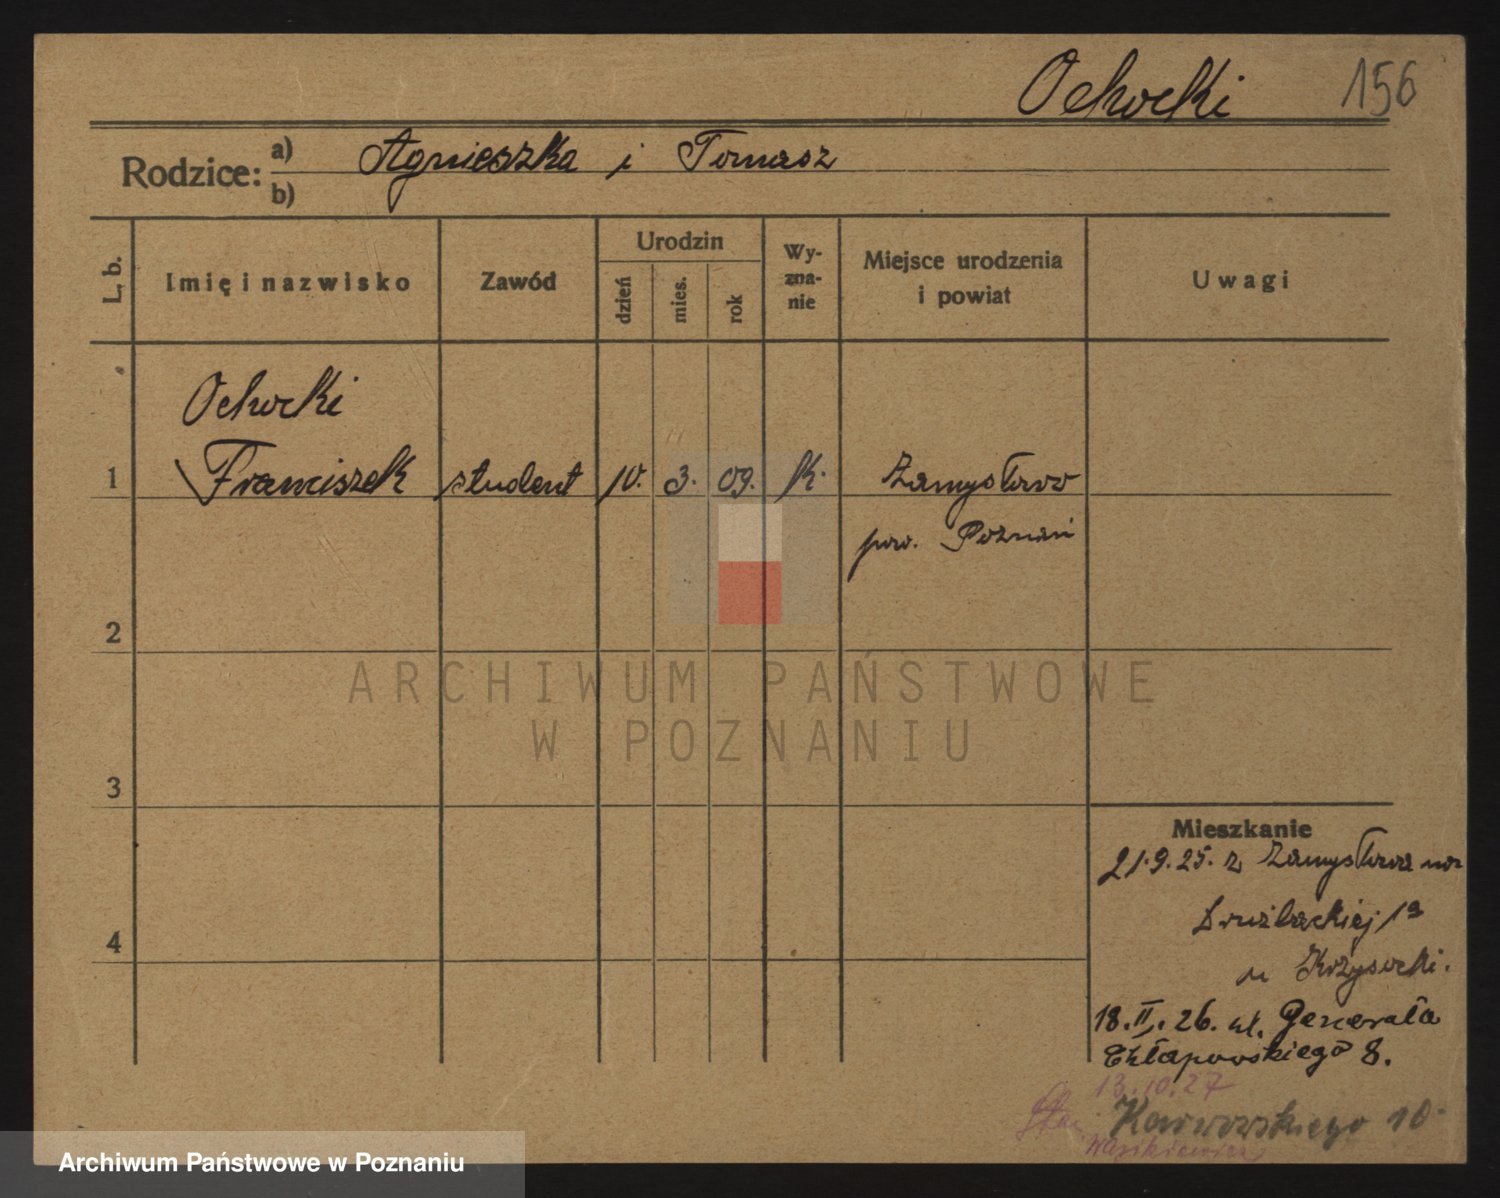 Ochocki 156
Rodzice: a) Agnieszka i Tomasz
b)
L. b.
Imię i nazwisko
Zawód
Urodzin
dzień
mies.
rok
Wy-
zna-
nie
Miejsce urodzenia
i powiat
Uwagi
Ochocki
1 Franciszek student 10. 3. 09. k. Zamysłowo
pow. Poznań
2
ARCHIWUM PAŃSTWOWE
W POZNANIU
3
Mieszkanie
21.9.25. z Zamysłowa na
Drużbackiej 1a
4
u Krzysocki.
18.II.26. ul. Generała
Chłapowskiego 8.
13.10.27
10
Archiwum Państwowe w Poznaniu